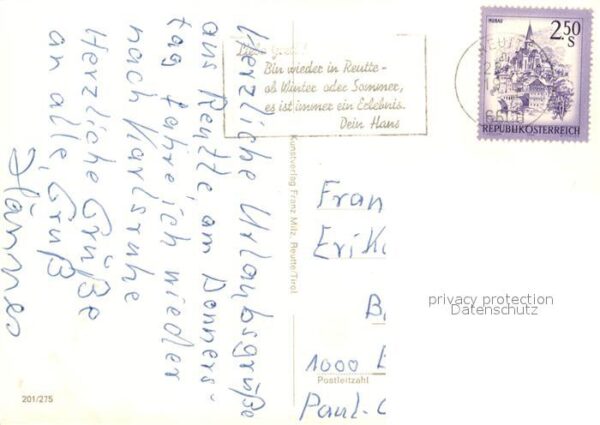 Herzliche Urlaubsgrüße
aus Reutte, am Donners-
tag fahre ich wieder
nach Karlsruhe
Herzliche Grüße
an alle, Gruß
Hannes
Bin wieder in Reutte-
ob Winter oder Sommer,
es ist immer ein Erlebnis.
Dein Hans
MURAU
2.50
S
REPUBLIK ÖSTERREICH
REUTTE
6600
Kunstverlag Franz Milz, Reutte/Tirol
Frau
Erik
B
1000
Postleitzahl
Paul-
privacy protection
Datenschutz
201/275